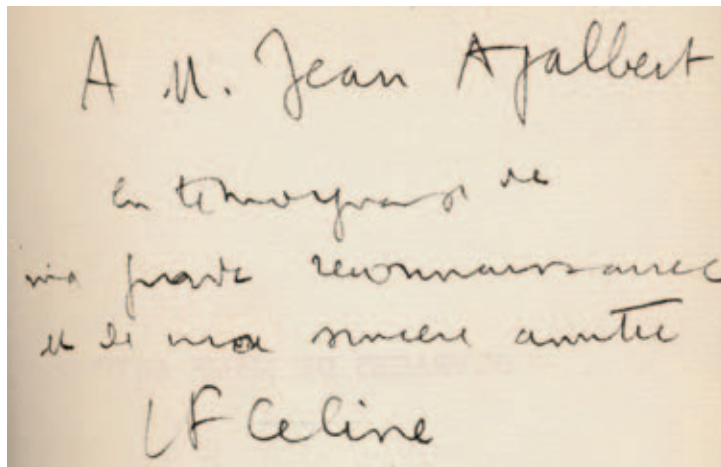 A M. Jean Ajalbert
en témoignage de
ma grande reconnaissance
et de ma sincère amitié
LF Celine